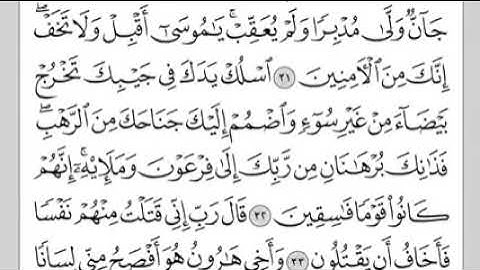 جَآنٌّ وَلَّىٰ مُدْبِرًا وَلَمْ يُعَقِّبْ ۚ يَٰمُوسَىٰٓ أَقْبِلْ وَلَا تَخَفْ ۖ
إِنَّكَ مِنَ ٱلْأٓمِنِينَ ٣١ ٱسْلُكْ يَدَكَ فِى جَيْبِكَ تَخْرُجْ
بَيْضَآءَ مِنْ غَيْرِ سُوٓءٍ وَٱضْمُمْ إِلَيْكَ جَنَاحَكَ مِنَ ٱلرَّهْبِ ۖ
فَذَٰنِكَ بُرْهَٰنَانِ مِن رَّبِّكَ إِلَىٰ فِرْعَوْنَ وَمَلَإِيْهِۦٓ ۚ إِنَّهُمْ
كَانُوا۟ قَوْمًا فَٰسِقِينَ ٣٢ قَالَ رَبِّ إِنِّى قَتَلْتُ مِنْهُمْ نَفْسًا
فَأَخَافُ أَن يَقْتُلُونِ ٣٣ وَأَخِى هَٰرُونُ هُوَ أَفْصَحُ مِنِّى لِسَانًا